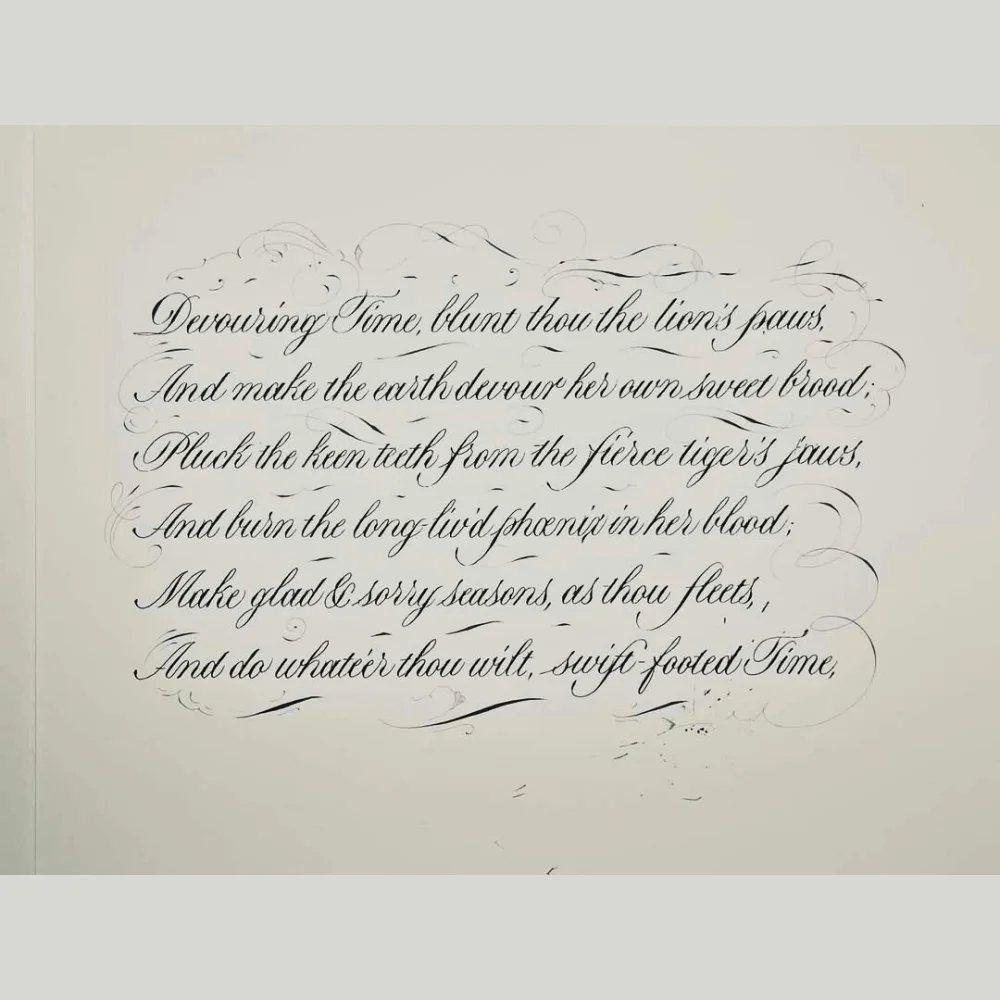 Devouring Time, blunt thou the lion's paws,
And make the earth devour her own sweet brood;
Pluck the keen teeth from the fierce tiger's jaws,
And burn the long-liv'd phœnix in her blood;
Make glad & sorry seasons, as thou fleets,,
And do whate'er thou wilt, swift-footed Time,